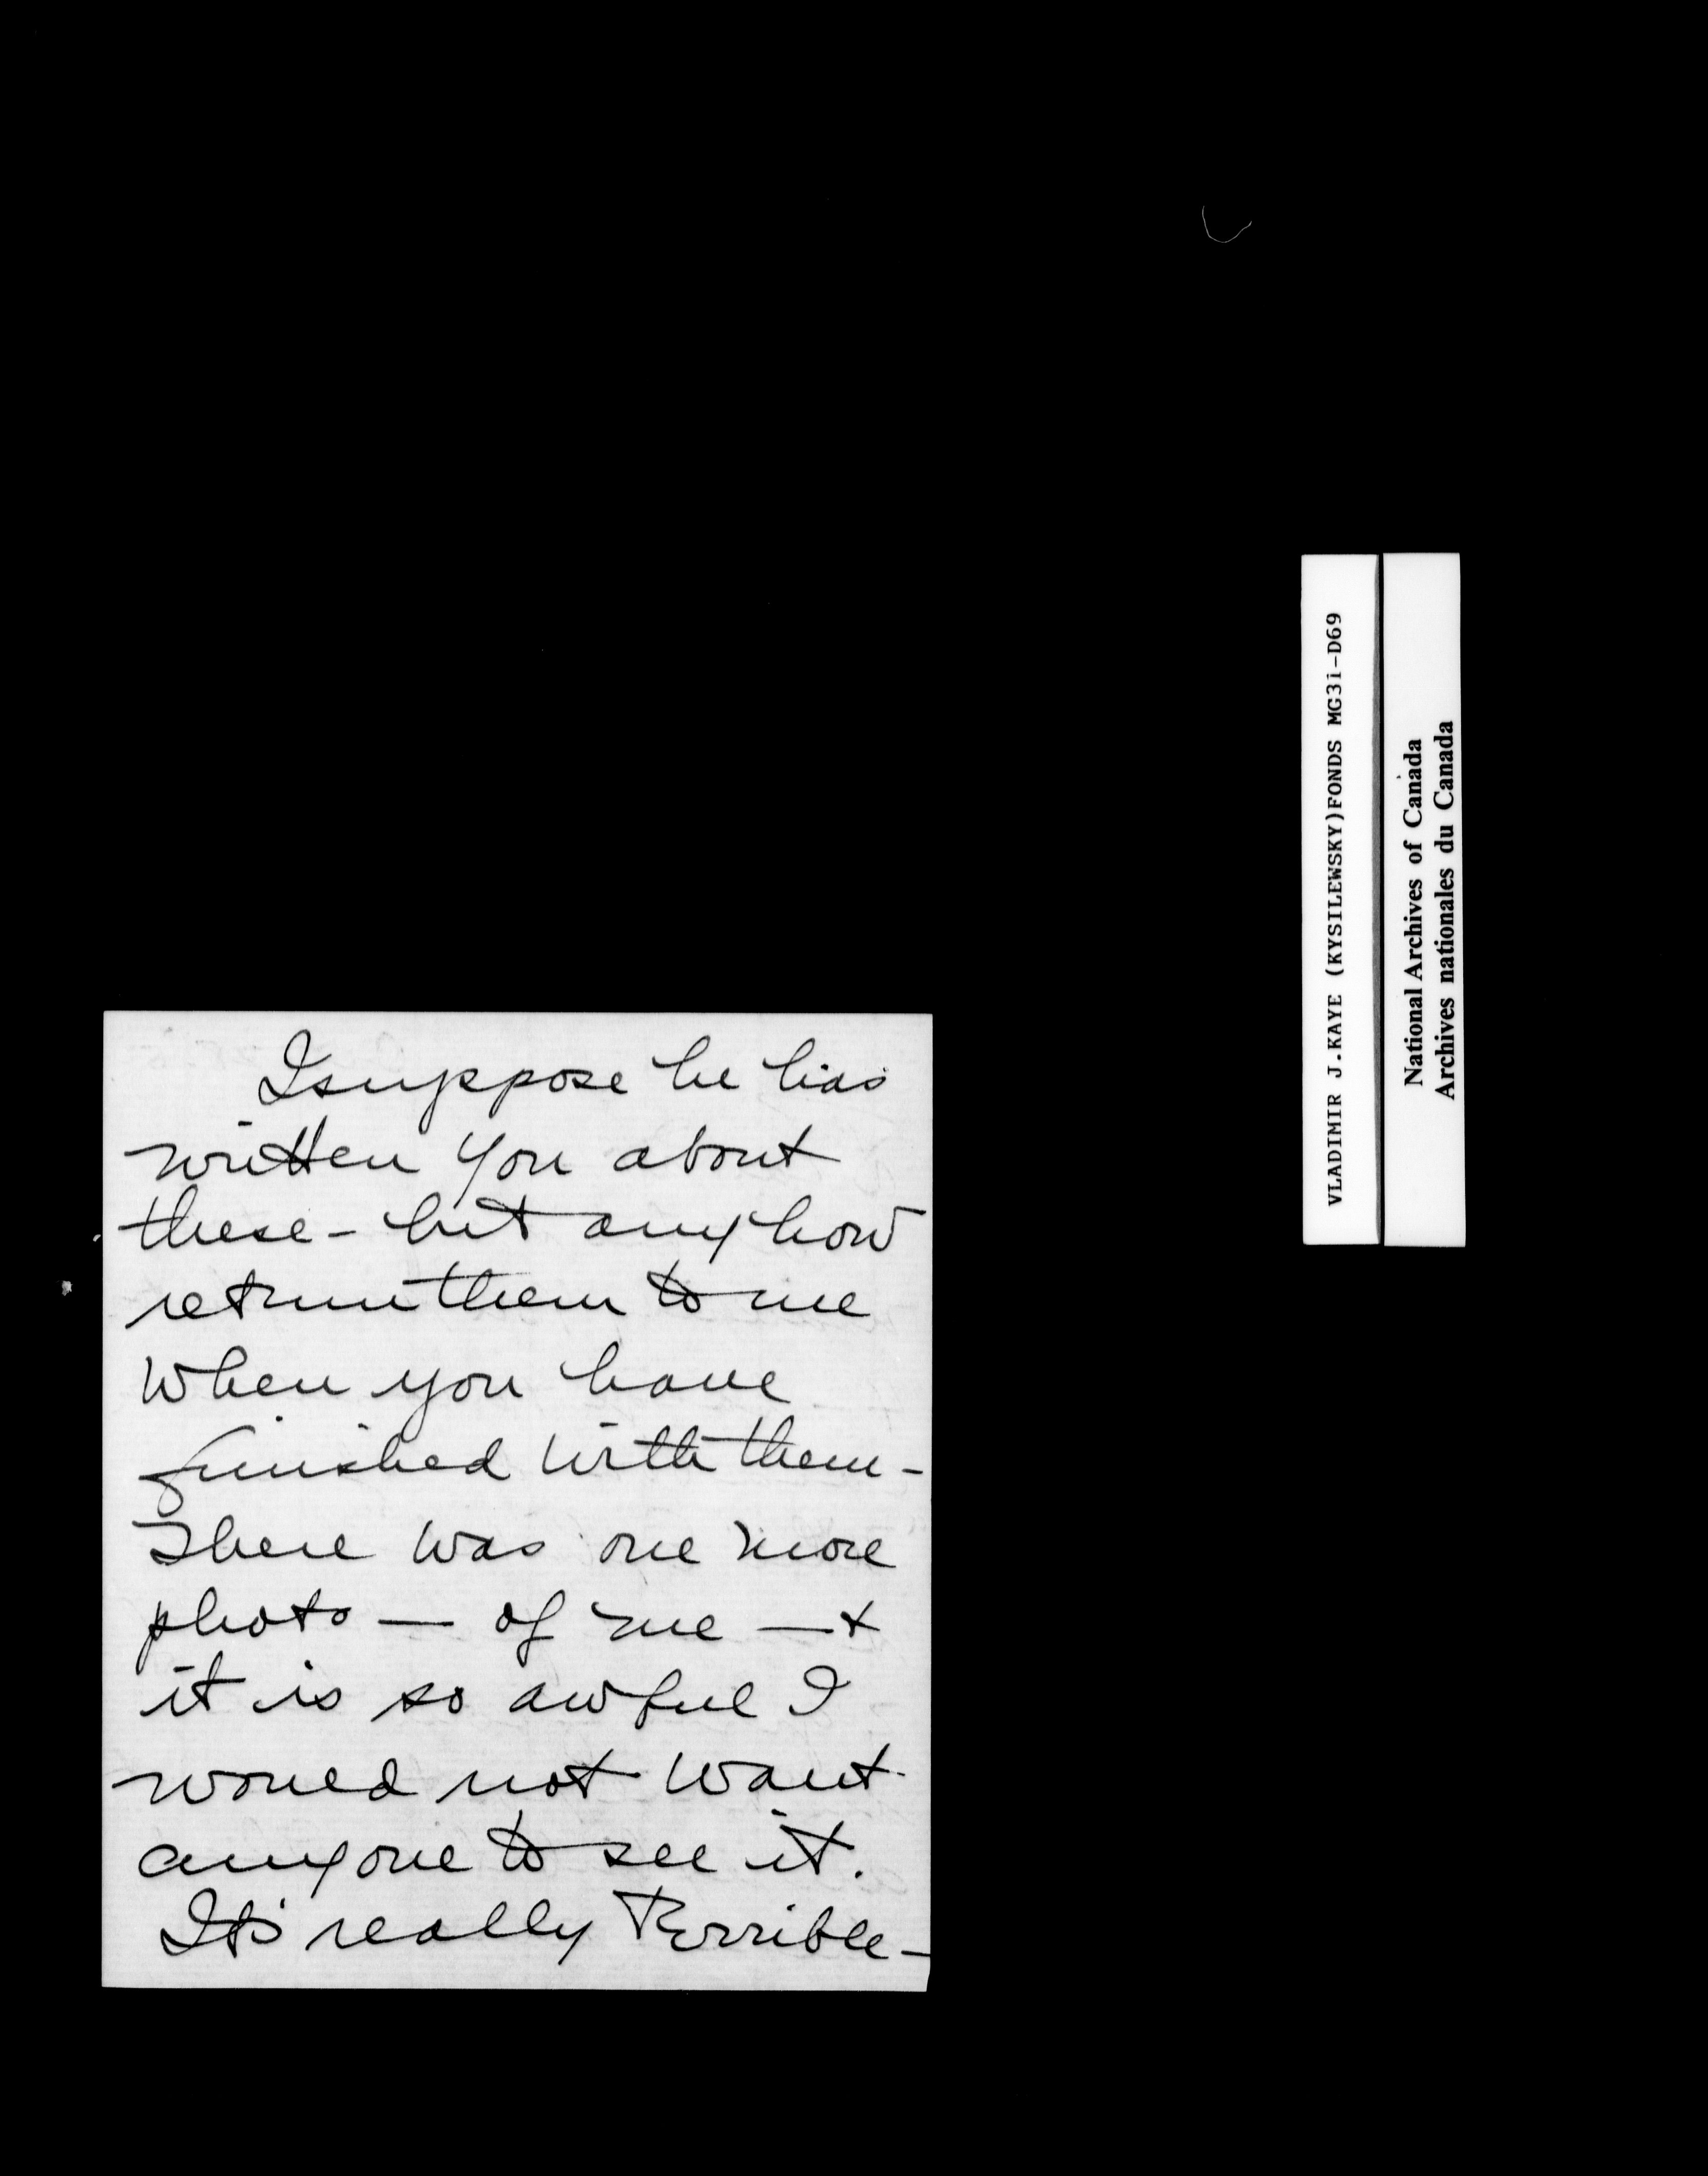 I suppose he has
written you about
these - but anyhow
return them to me
when you have
finished with them -
There was one more
photo — of me — +
it is so awful I
would not want
anyone to see it.
It's really terrible -
VLADIMIR J.KAYE (KYSILEWSKY)FONDS MG31-D69
National Archives of Canada
Archives nationales du Canada